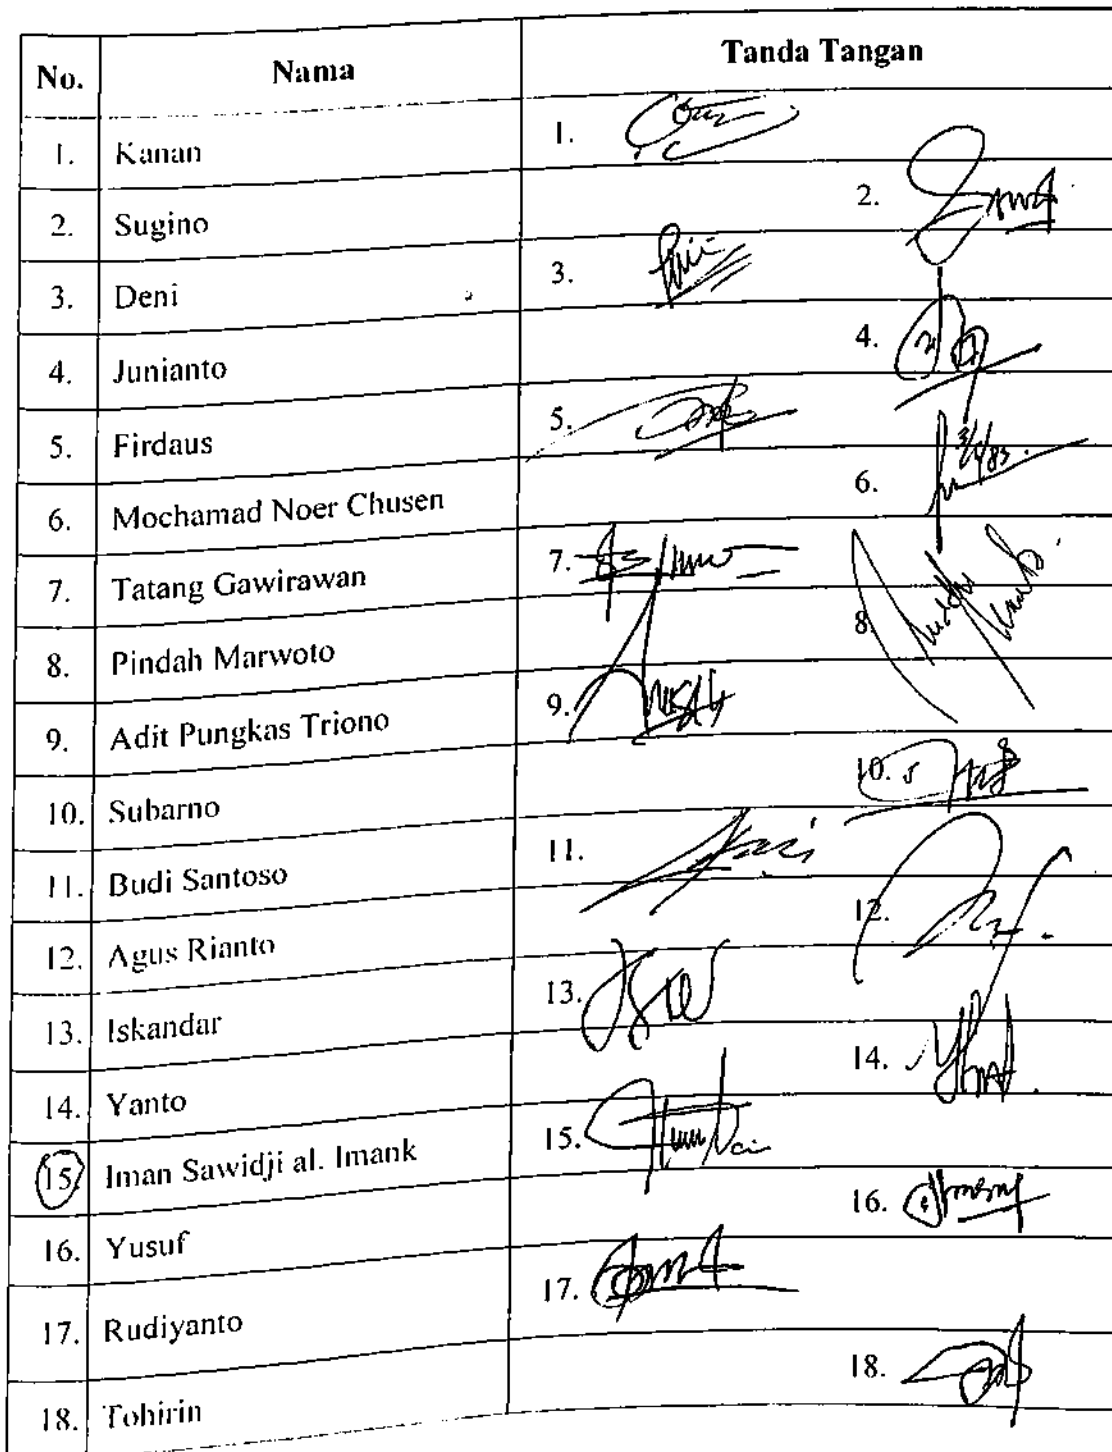 No. Nama Tanda Tangan
1. Kanan 1.
2. Sugino 2.
3. Deni 3.
4. Junianto 4.
5. Firdaus 5.
6. Mochamad Noer Chusen 6.
7. Tatang Gawirawan 7.
8. Pindah Marwoto 8.
9. Adit Pungkas Triono 9.
10. Subarno 10.
11. Budi Santoso 11.
12. Agus Rianto 12.
13. Iskandar 13.
14. Yanto 14.
15. Iman Sawidji al. Imank 15.
16. Yusuf 16.
17. Rudiyanto 17.
18. Tohirin 18.